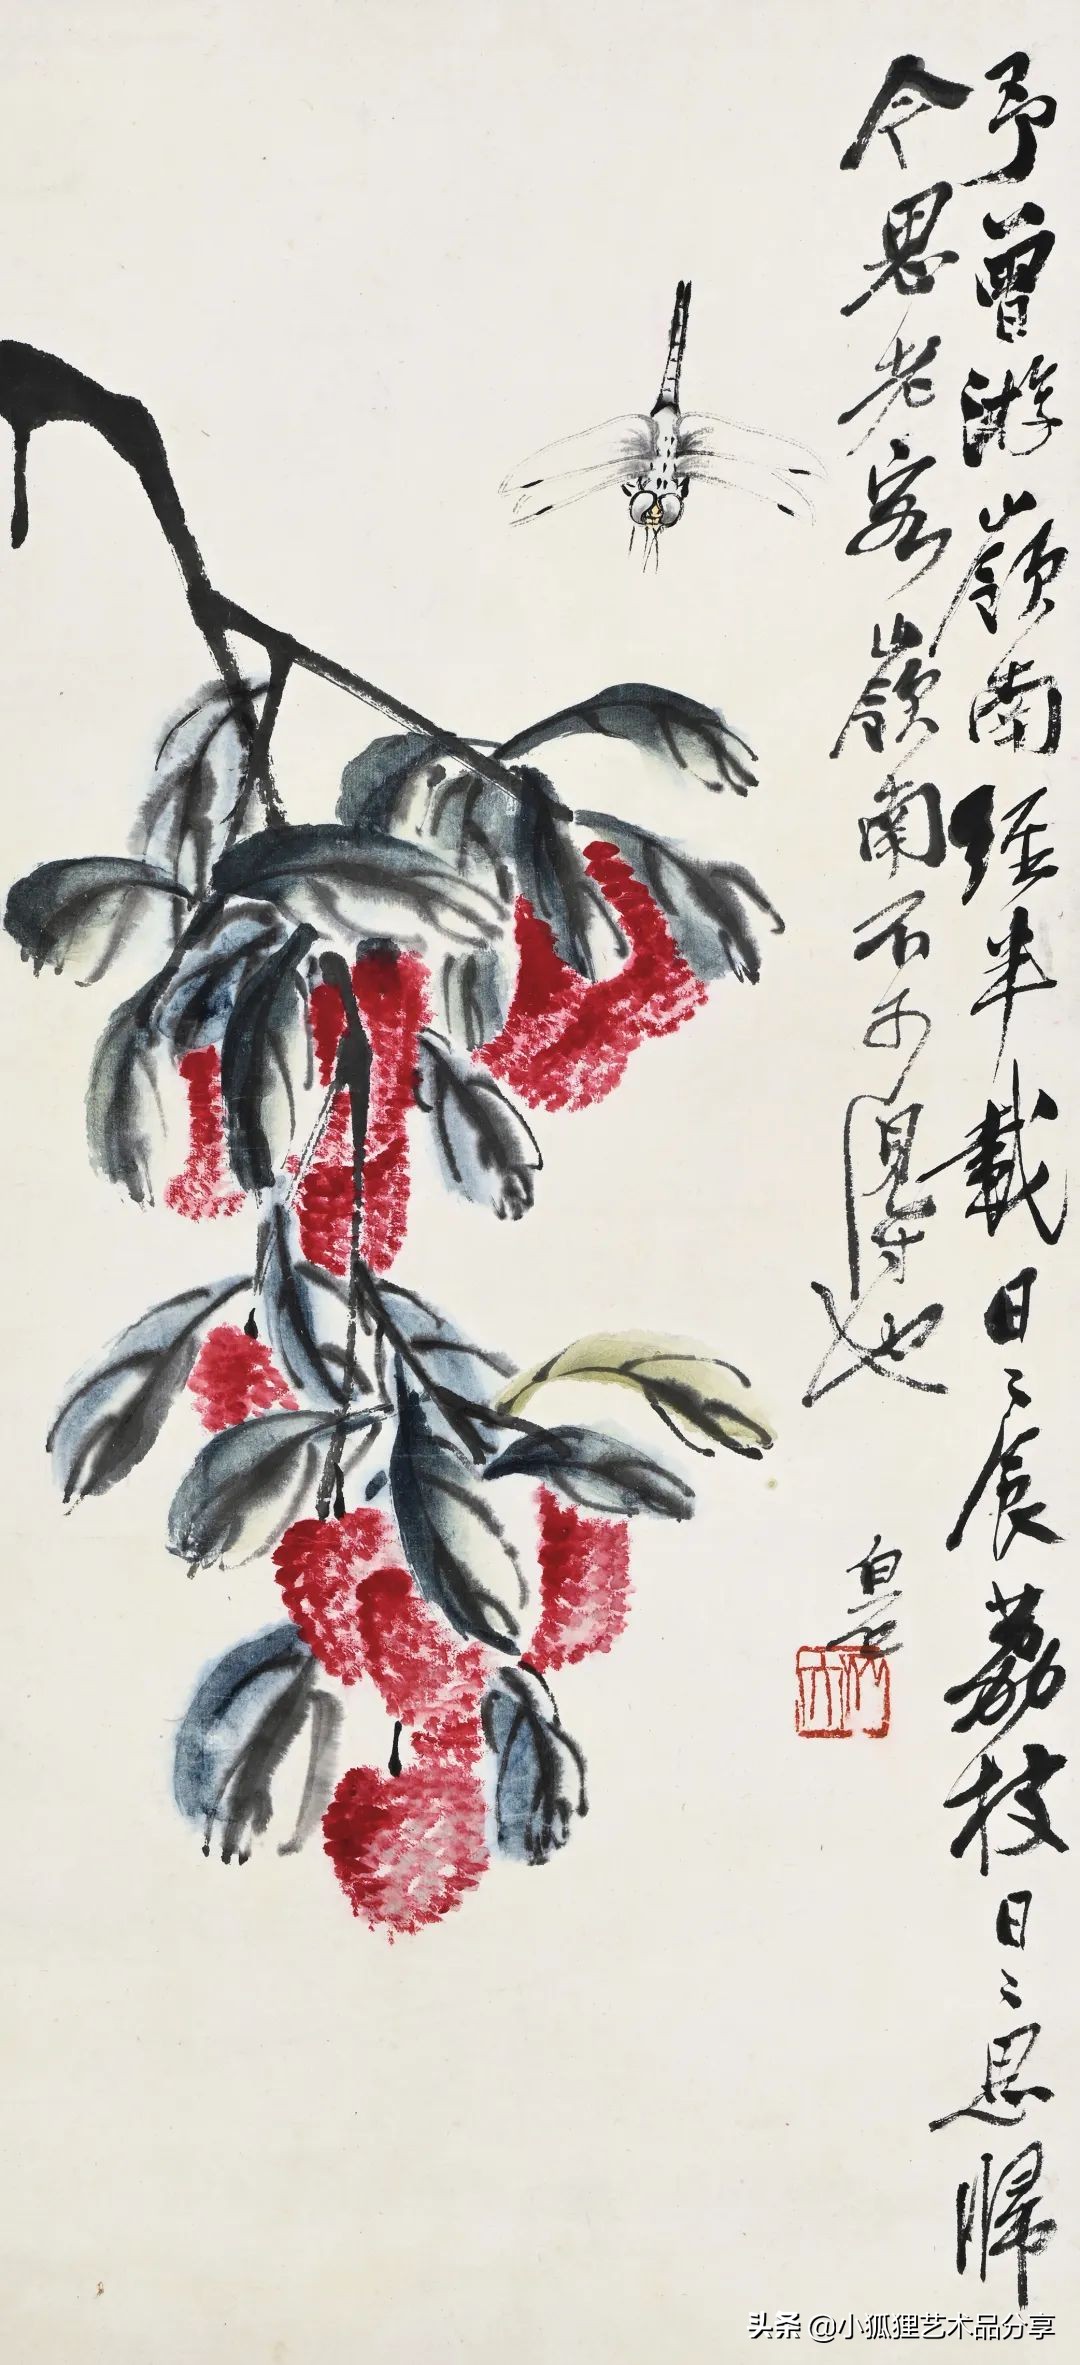 予曾游嶺南經半載日〻食荔枝日〻思歸
今思老客嶺南不可得也
白石
头条 @小狐狸艺术品分享